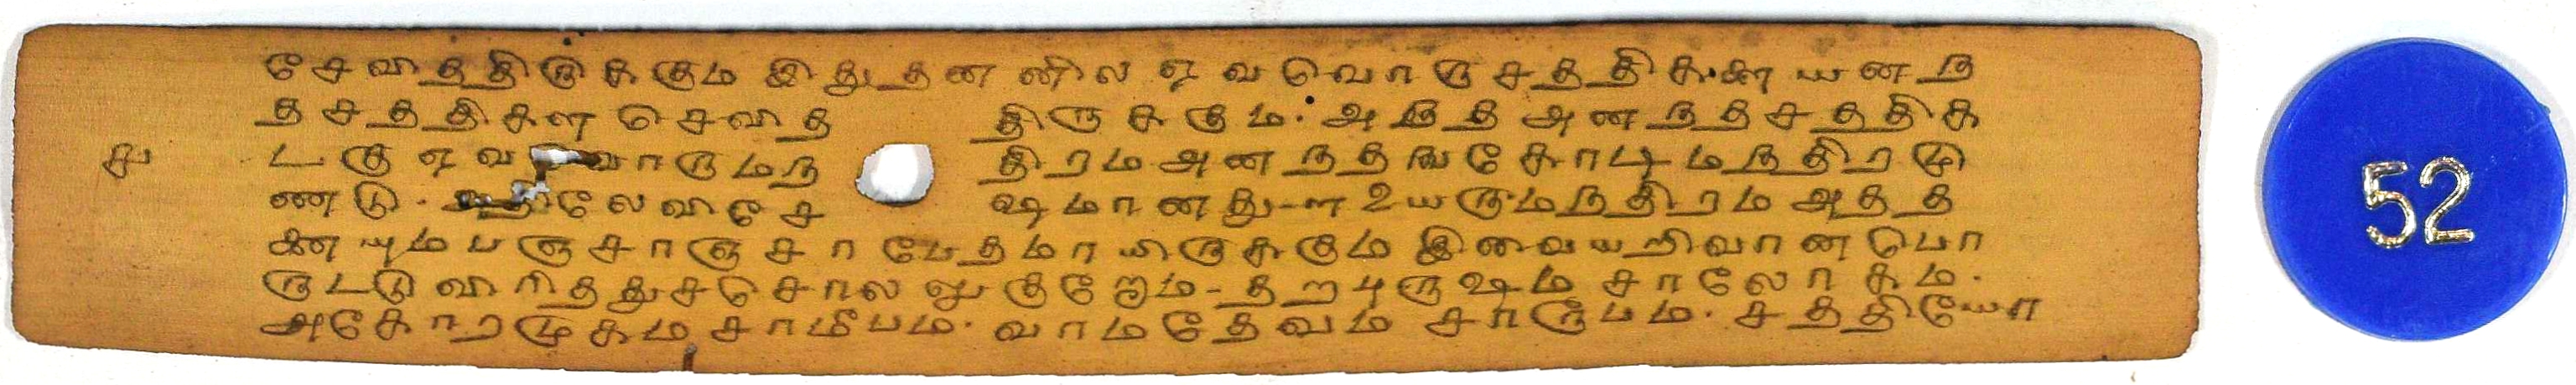 சேவித்திருக்கும் இதுதனனில ஏவவொருசத்திக்கனையனந
தசத்திகள செவித திருககும. அநத அனநதசத்திக
டகு ஏவ வாருமந திரம அனநதங கோடி மநதிரமு
சு
ணடு. லேவிசே ஷமானது-ள உயரும்நதிரம அதத
னையும பஞசாஞசா பேதமாயிருககும இவையறிவான பொ
ருடடு விரிததுசசொலலுகுறோம- தறபுருஷம சாலோகம.
அகோரமுகம சாமீபம. வாமதேவம சாரூபம. சததியோ
52